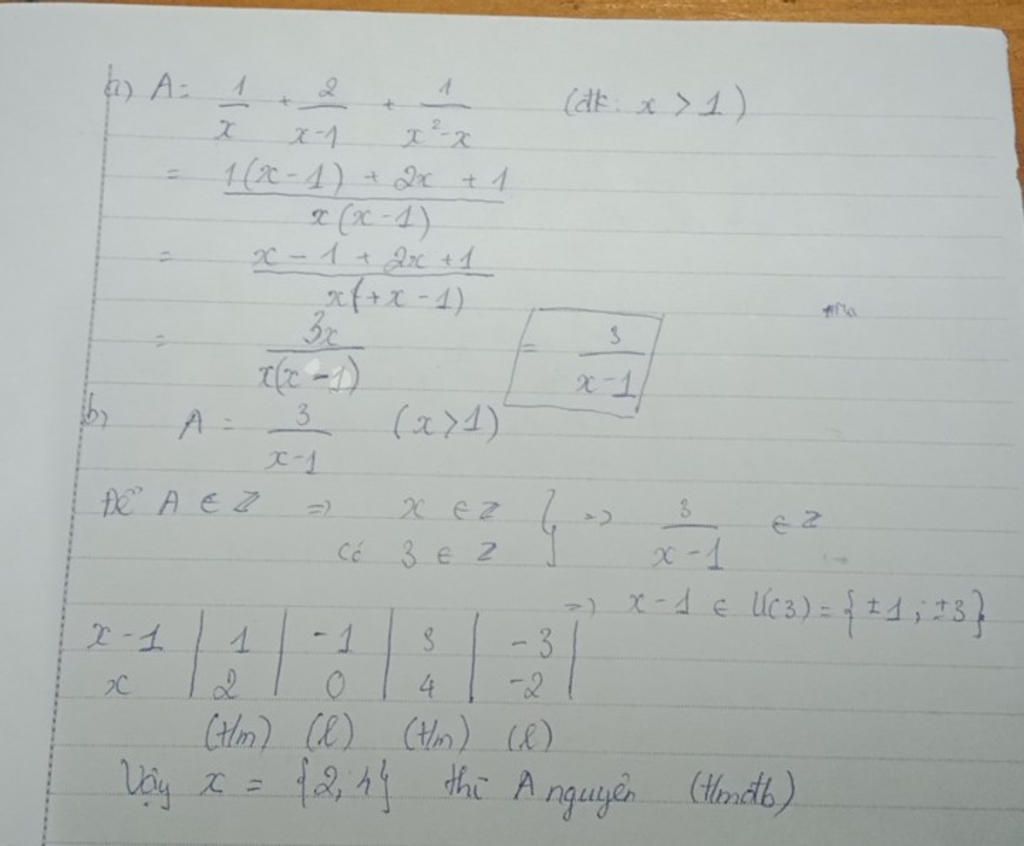 a) A = 1/x + 2/x-1 + 1/x²-x (đk: x > 1)
= 1(x-1) + 2x + 1 / x(x-1)
= x - 1 + 2x + 1 / x(+x - 1)
= 3x / x(x-1) = 3 / x-1
b) A = 3 / x-1 (x>1)
Để A ∈ Z => x ∈ Z } => 3 / x-1 ∈ Z
Có 3 ∈ Z
=> x-1 ∈ Ư(3) = {±1; ±3}
x-1 | 1 | -1 | 3 | -3 |
x | 2 | 0 | 4 | -2 |
(t/m) (l) (t/m) (l)
Vậy x = {2; 4} thì A nguyên (t/mđb)